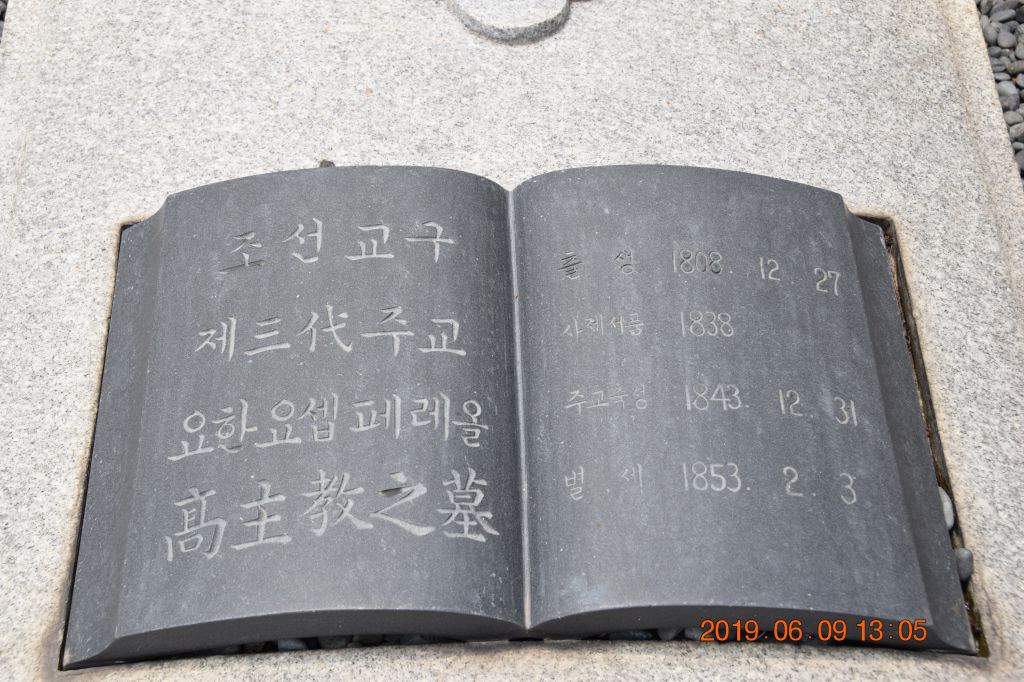 조선교구
제三代주교
요한요셉페레올
高主教之墓
출생 1808. 12. 27
사제서품 1838
주교축성 1843. 12. 31
별세 1853. 2. 3
2019.06.09 13:05